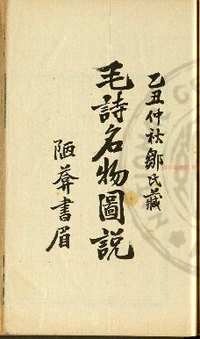 乙丑仲秋鄒氏藏
毛詩名物圖說
陋葊書眉